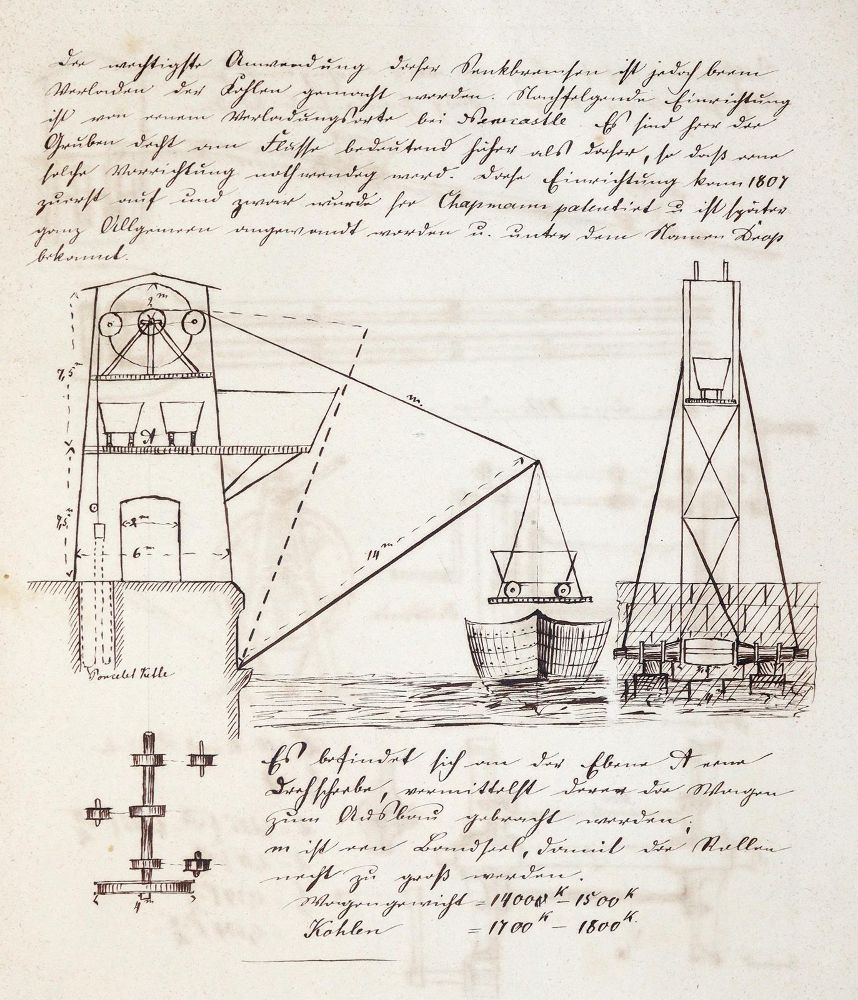 Die wichtigste Anwendung dieser Senkbremsen ist jedoch beim
Verladen der Kohlen gemacht worden. Nachfolgende Einrichtung
ist von einem Verladungsorte bei Newcastle Es sind hier die
Gruben dicht am Flusse bedeutend höher als dieser, so daß eine
solche Vorrichtung nothwendig wird. Diese Einrichtung kam 1807
zuerst auf und zwar wurde sie Chapmann patentirt u ist später
ganz Allgemein angewandt worden u. unter dem Namen Drop
bekannt.
2 m
7,5 m
m.
A
7,5 m
2 m
14 m
6 m
Poncelet Kette
4 m
Es befindet sich an der Ebene A eine
Drehscheibe, vermittelst derer die Wagen
zum Ausbau gebracht werden;
m ist ein Bandseil, damit die Rollen
nicht zu groß werden.
Wagengewicht = 1400 K – 1500 K
Kohlen = 1700 K – 1800 K.